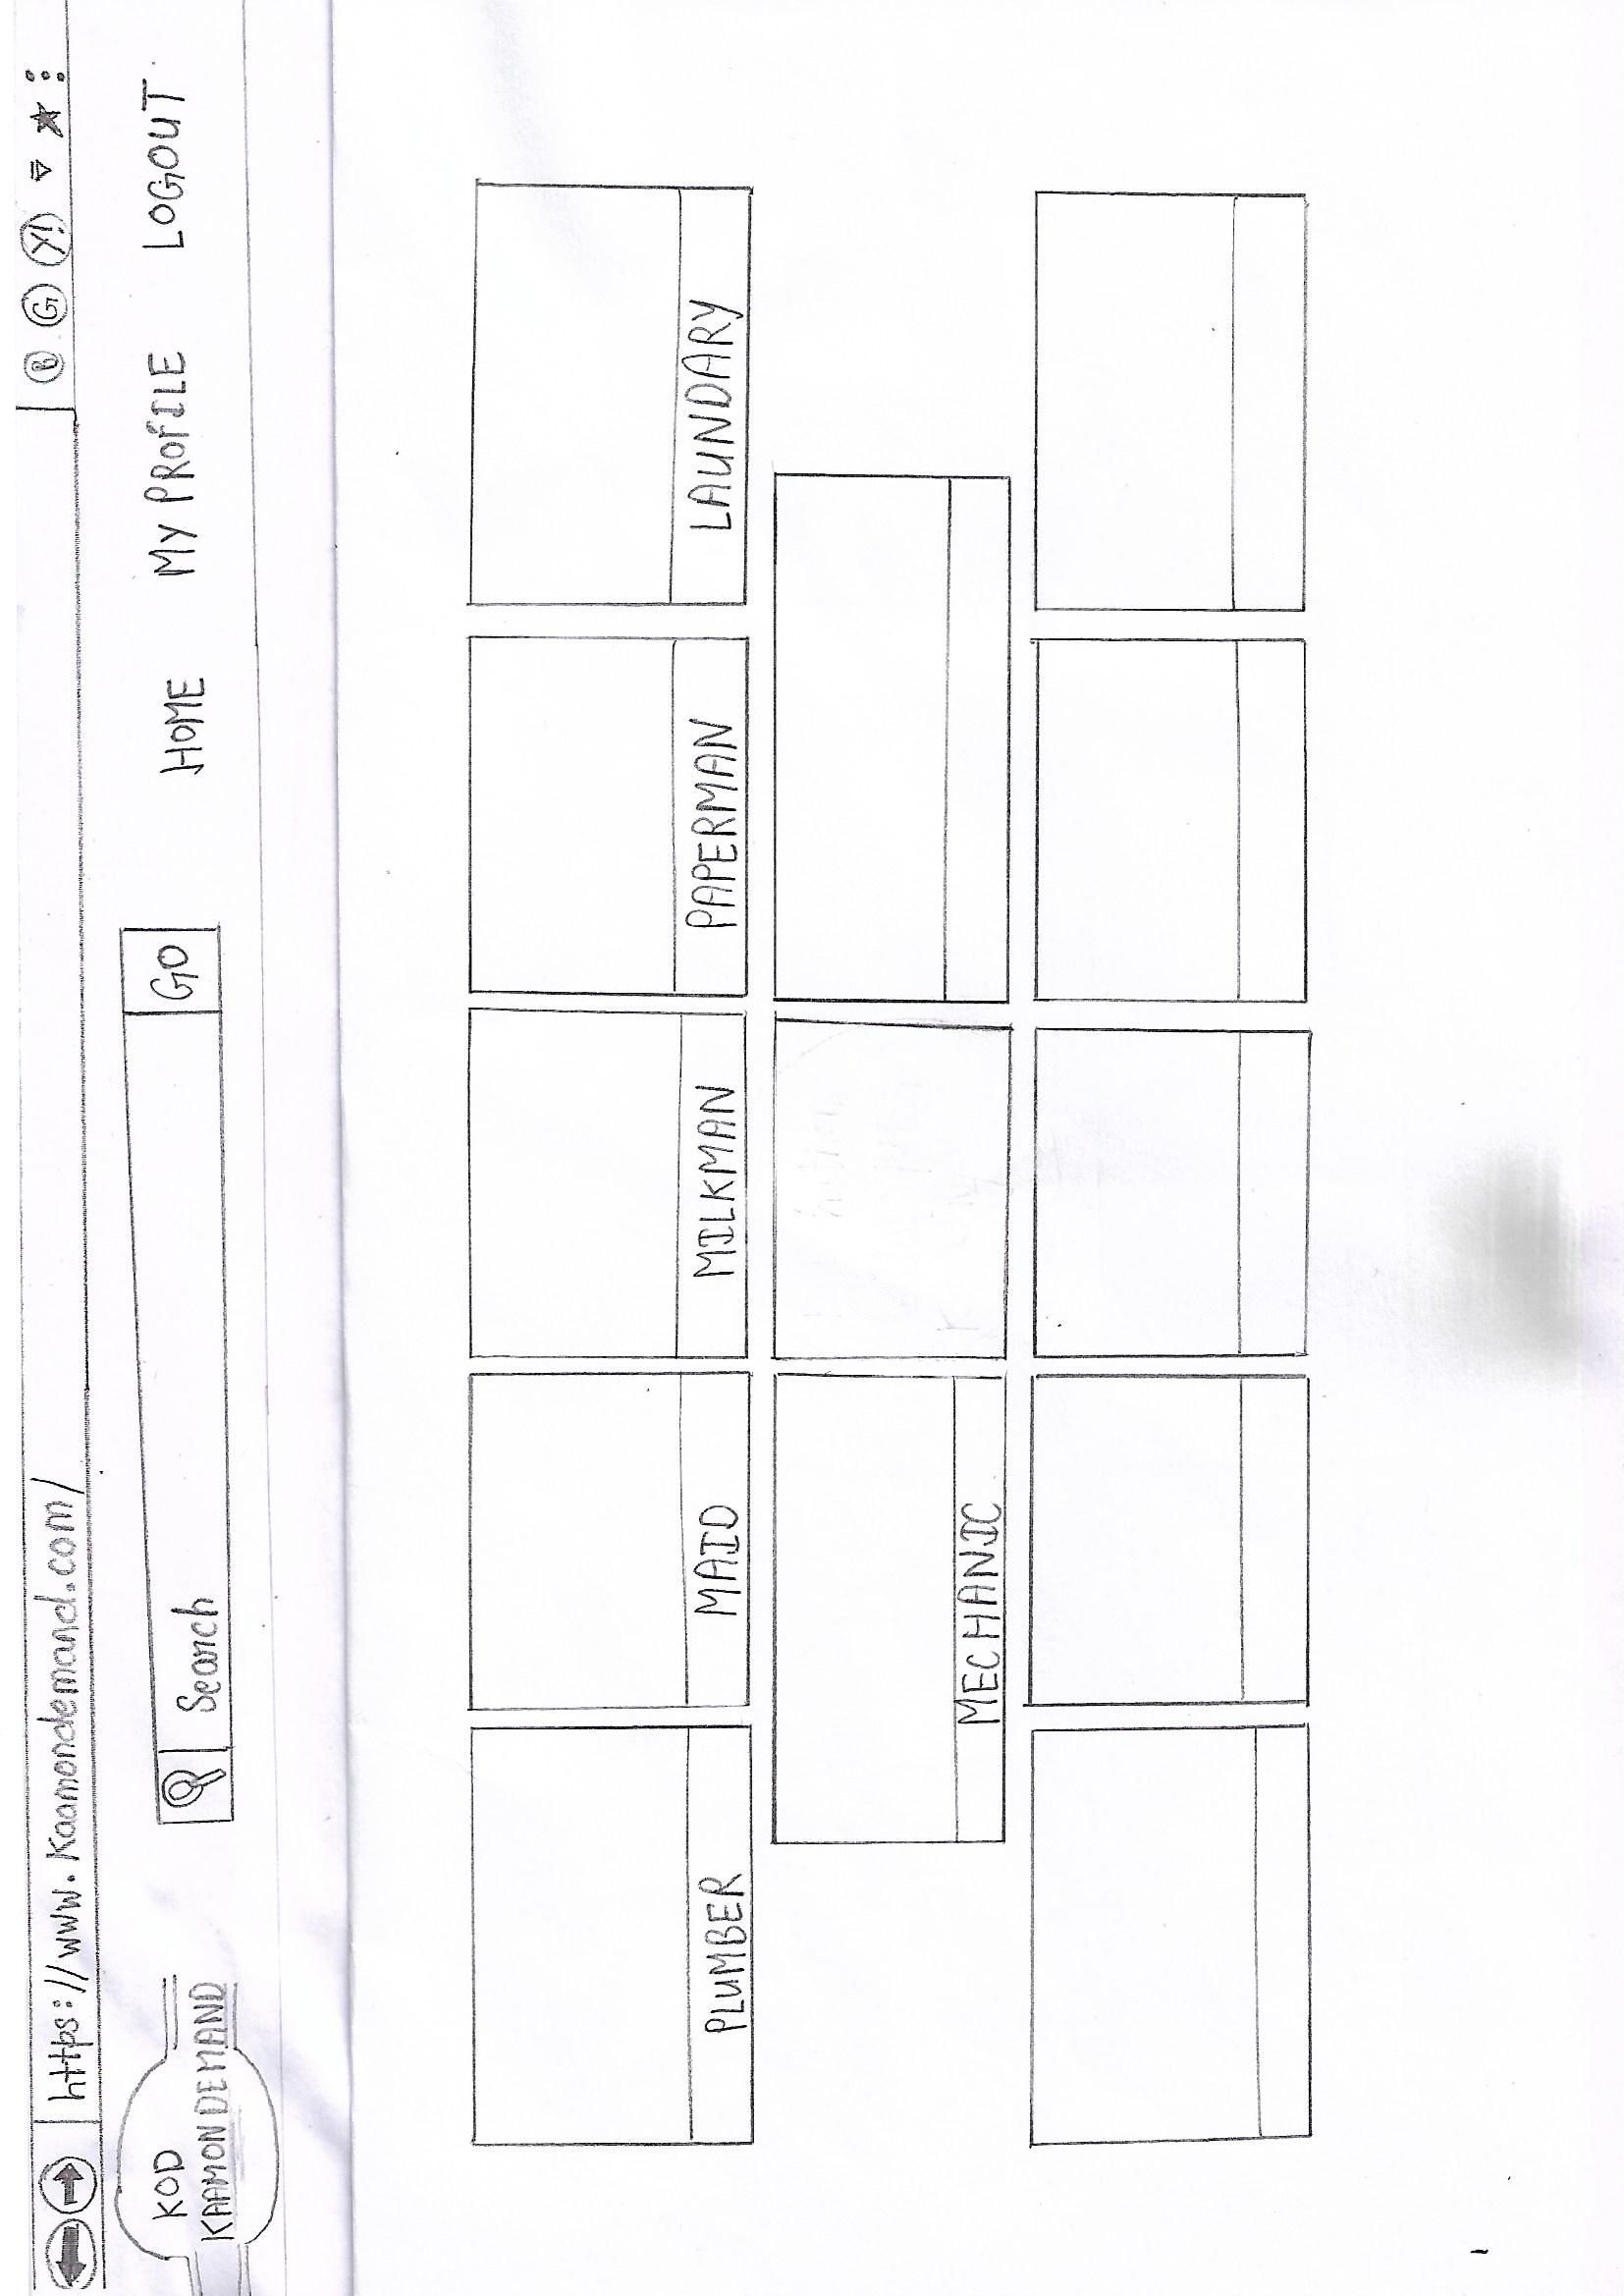 https://www.kaamondemand.com/
B G Y!
KOD
KAAMONDEMAND
Search
GO
HOME
MY PROFILE
LOGOUT
PLUMBER
MAID
MILKMAN
PAPERMAN
LAUNDARY
MECHANIC